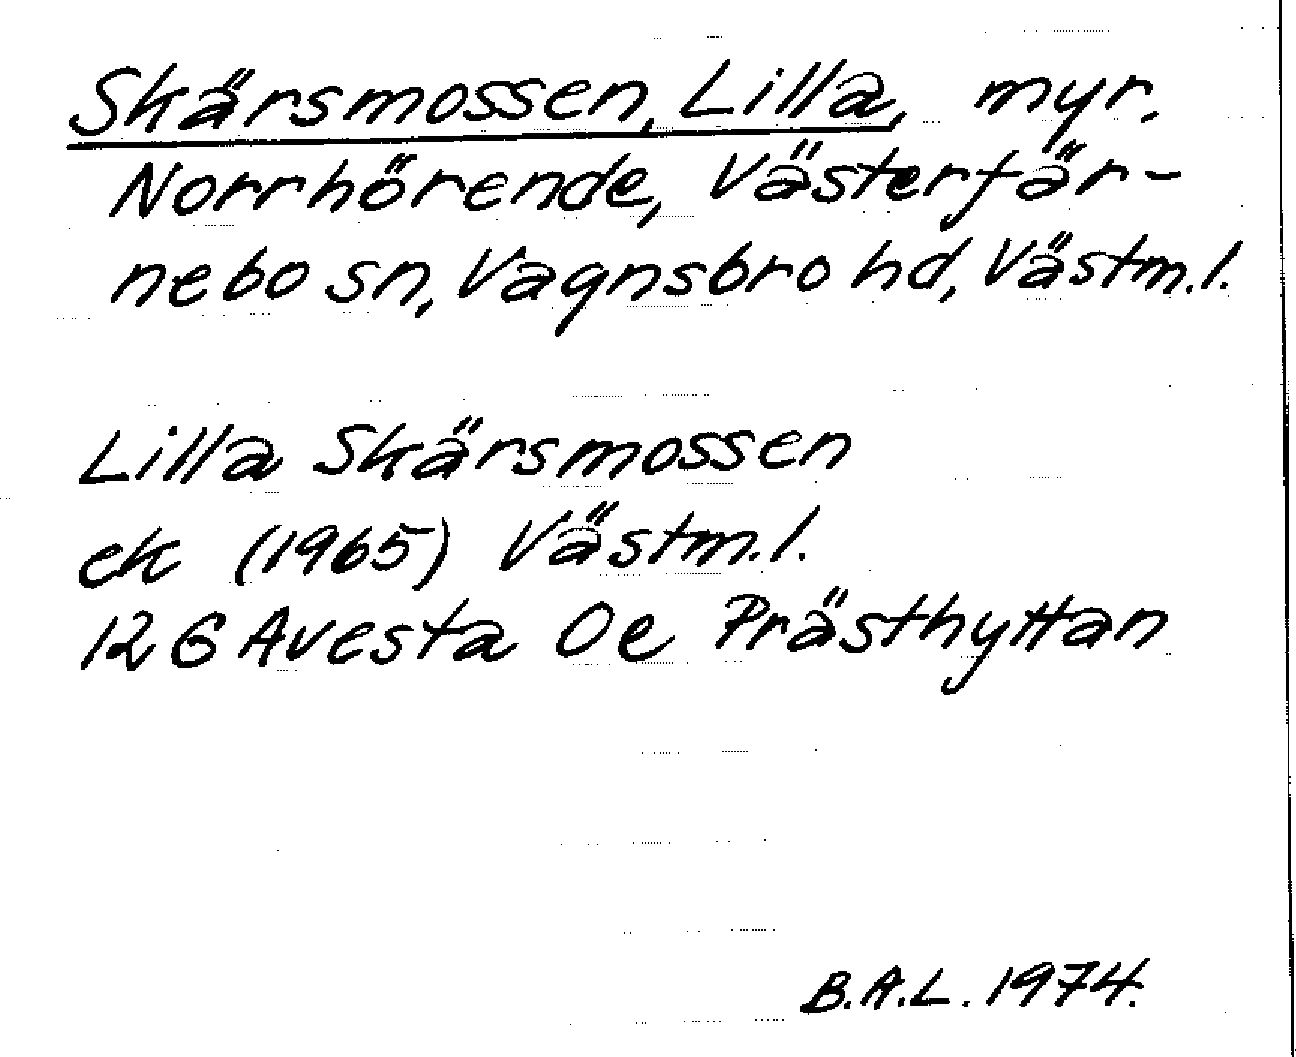 Skärsmossen, Lilla, myr.
Norrhörende, Västerfär-
nebo sn, Vagnsbro hd, Västm.l.
Lilla Skärsmossen
ek (1965) Västm.l.
12 G Avesta Oe Prästhyttan
B.A.L. 1974.